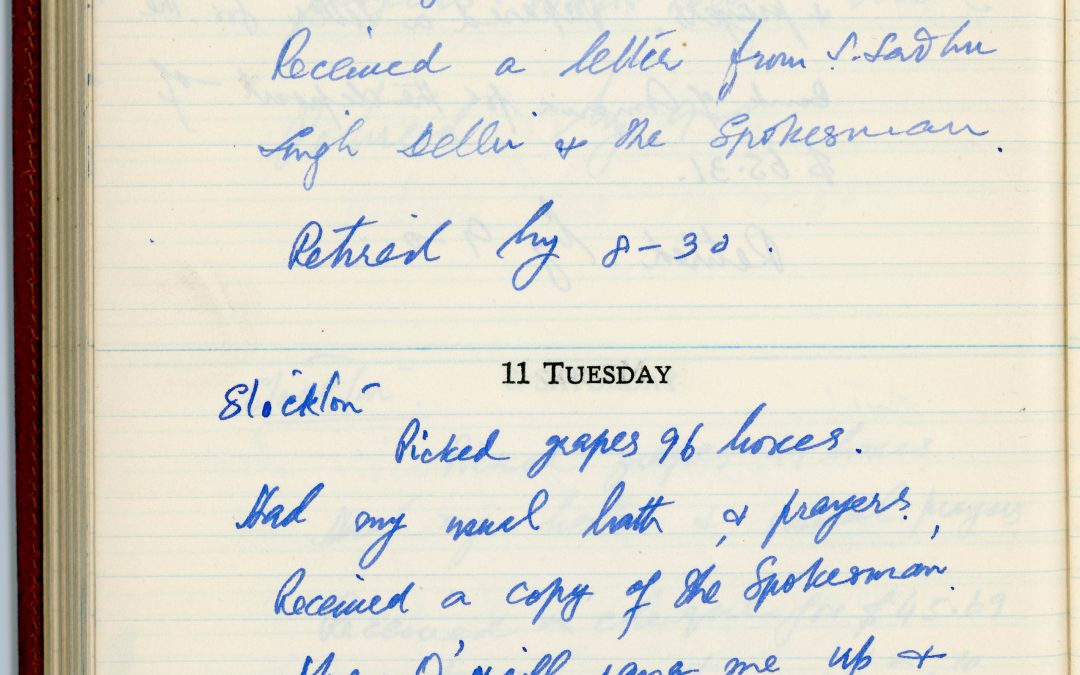 Received a letter from S. Sadhu
Singh Delhi & the Spokesman.
Retired by 8-30.
11 TUESDAY
Stockton
Picked grapes 96 boxes.
Had my usual bath & prayers.
Received a copy of the Spokesman.
me up &